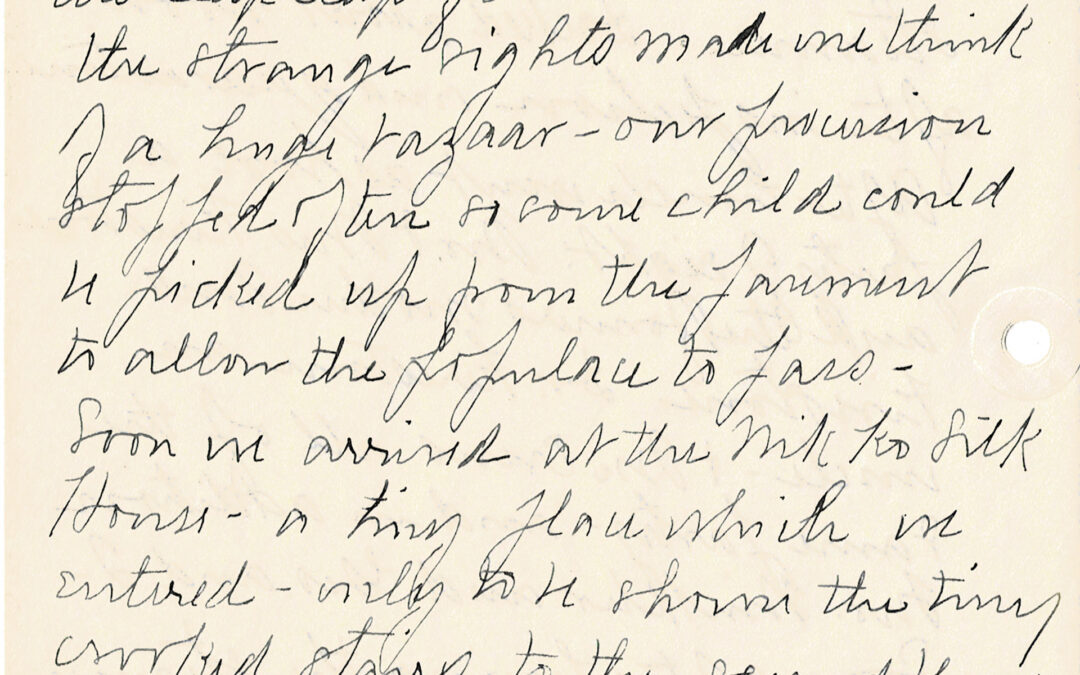 the strange sights made one think
of a huge bazaar - our procession
stopped often so some child could
be picked up from the pavement
to allow the populace to pass -
Soon we arrived at the Nikko Silk
House - a tiny place which we
entered - only to be shown the tiny
crooked stairs to the